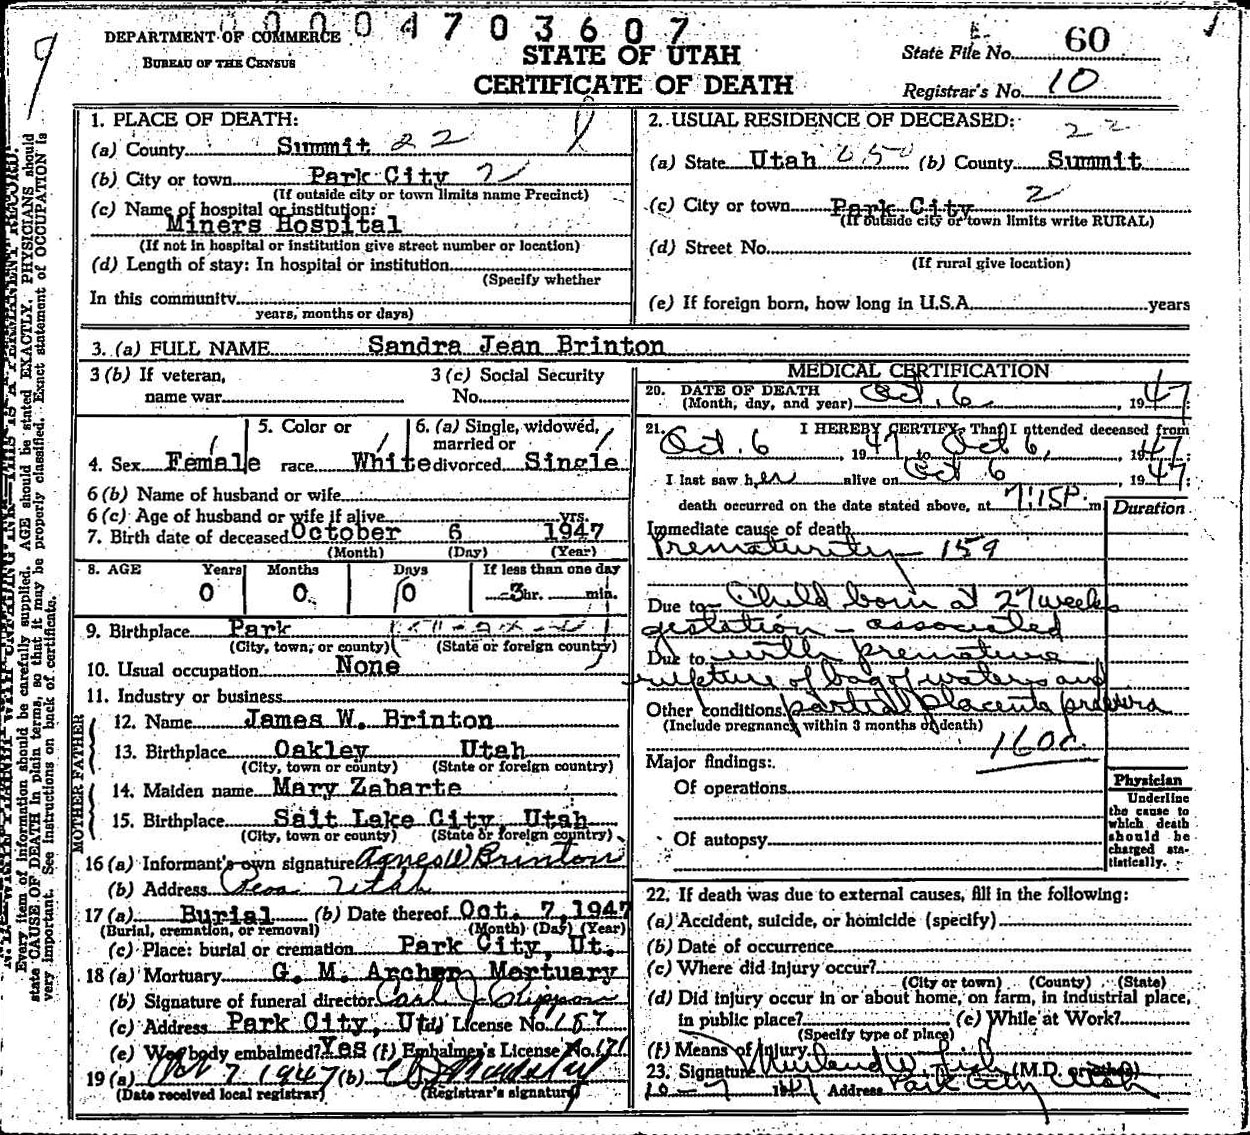 00004703607
DEPARTMENT OF COMMERCE
BUREAU OF THE CENSUS
STATE OF UTAH
CERTIFICATE OF DEATH
State File No. 60
Registrar's No. 10
1. PLACE OF DEATH:
(a) County Summit 22
(b) City or town Park City 2
(If outside city or town limits name Precinct)
(c) Name of hospital or institution:
Miners Hospital
(If not in hospital or institution give street number or location)
(d) Length of stay: In hospital or institution
(Specify whether
In this community
years, months or days)
2. USUAL RESIDENCE OF DECEASED:
22
(a) State Utah 050 (b) County Summit
2
(c) City or town Park City
(If outside city or town limits write RURAL)
(d) Street No.
(If rural give location)
(e) If foreign born, how long in U.S.A. years
3. (a) FULL NAME Sandra Jean Brinton
3 (b) If veteran,
name war
3 (c) Social Security
No.
4. Sex Female
5. Color or
race White
6. (a) Single, widowed,
married or
divorced Single
6 (b) Name of husband or wife
6 (c) Age of husband or wife if alive yrs.
7. Birth date of deceased October 6 1947
(Month) (Day) (Year)
8. AGE Years Months Days If less than one day
0 0 0 3 hr. min.
9. Birthplace Park
(City, town, or county) (State or foreign country)
10. Usual occupation None
11. Industry or business
FATHER
12. Name James W. Brinton
13. Birthplace Oakley Utah
(City, town or county) (State or foreign country)
MOTHER
14. Maiden name Mary Zabarte
15. Birthplace Salt Lake City, Utah
(City, town or county) (State or foreign country)
16 (a) Informant's own signature Agnes W Brinton
(b) Address Utah
17 (a) Burial (b) Date thereof Oct. 7, 1947
(Burial, cremation, or removal) (Month) (Day) (Year)
(c) Place: burial or cremation Park City, Ut.
18 (a) Mortuary G. M. Archer Mortuary
(b) Signature of funeral director Carl J.
(c) Address Park City, Ut. (d) License No. 187
(e) Was body embalmed? Yes (f) Embalmer's License No. 171
19 (a) Oct 7 1947 (b)
(Date received local registrar) (Registrar's signature)
MEDICAL CERTIFICATION
20. DATE OF DEATH
(Month, day, and year) Oct. 6, 1947
21. I HEREBY CERTIFY, That I attended deceased from
Oct. 6, 1947 to Oct 6, 1947
I last saw her alive on Oct 6, 1947
death occurred on the date stated above, at 7:15P. m
Duration
Immediate cause of death
Prematurity 159
Due to Child born at 27 weeks
gestation - associated
Due to with premature
rupture of bag of waters and
Other conditions partial placenta previa
(Include pregnancy within 3 months of death)
160c
Major findings:
Of operations
Of autopsy
Physician
Underline
the cause to
which death
should be
charged sta-
tistically.
22. If death was due to external causes, fill in the following:
(a) Accident, suicide, or homicide (specify)
(b) Date of occurrence
(c) Where did injury occur?
(City or town) (County) (State)
(d) Did injury occur in or about home, on farm, in industrial place,
in public place? (e) While at Work?
(Specify type of place)
(f) Means of Injury
23. Signature (M.D. or other)
10-7 1947 Address Park City Utah
Every item of information should be carefully supplied. AGE should be stated EXACTLY. PHYSICIANS should
state CAUSE OF DEATH in plain terms, so that it may be properly classified. Exact statement of OCCUPATION is
very important. See instructions on back of certificate.